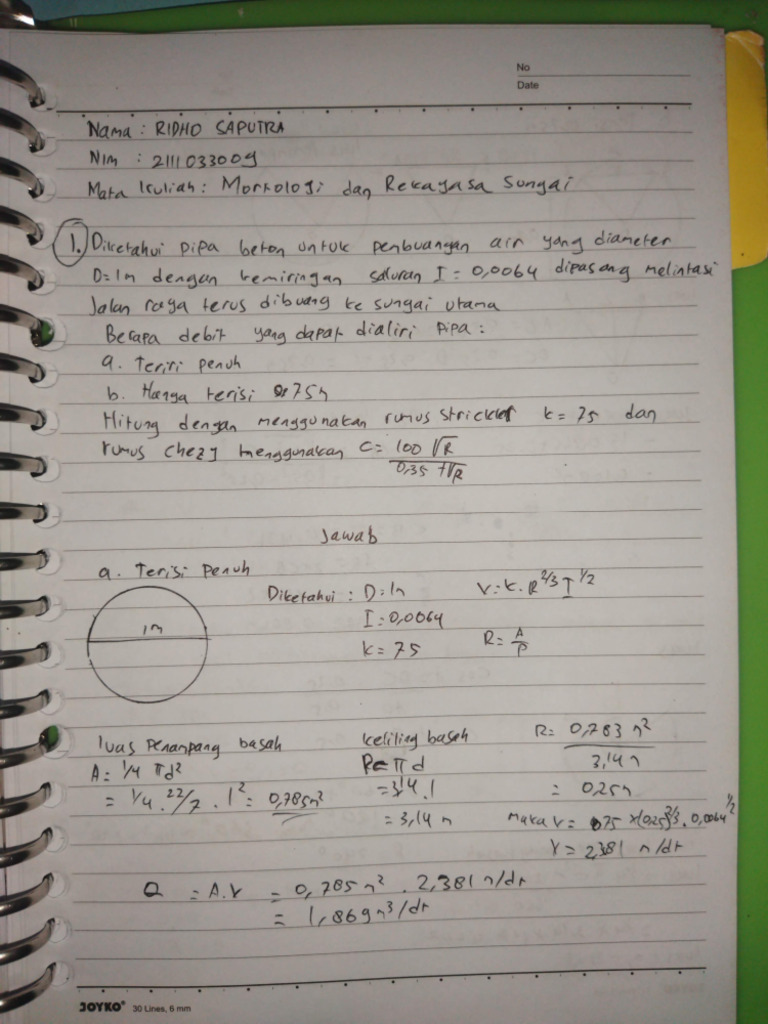 No
Date
Nama : RIDHO SAPUTRA
NIM : 2111033009
Mata kuliah : Morfologi dan Rekayasa Sungai
1. Diketahui pipa beton untuk penbuangan air yang diameter
D=1m dengan kemiringan saluran I = 0,0064 dipasang melintasi
Jalan raya terus dibuang ke sungai utama
Berapa debit yang dapat dialiri pipa :
a. Teriri penuh
b. Hanya terisi 0.75m
Hitung dengan menggunakan rumus strickler k = 75 dan
rumus chezy menggunakan C = 100 √R / 0,35 + √R
Jawab
a. Terisi penuh
1m
Diketahui : D = 1m
I = 0,0064
k = 75
V = k . R^2/3 I^1/2
R = A/P
luas penampang basah
A = 1/4 πd²
= 1/4 . 22/7 . 1² = 0,785m²
keliling basah
P = π d
= 3,14 . 1
= 3,14 m
R = 0,783 m² / 3,14 m
= 0,25m
Maka V = 75 x (0,25)^2/3 . 0,0064^1/2
V = 2,381 m/dt
Q = A.V = 0,785 m² . 2,381 m/dt
= 1,869 m³/dt
JOYKO® 30 Lines, 6 mm